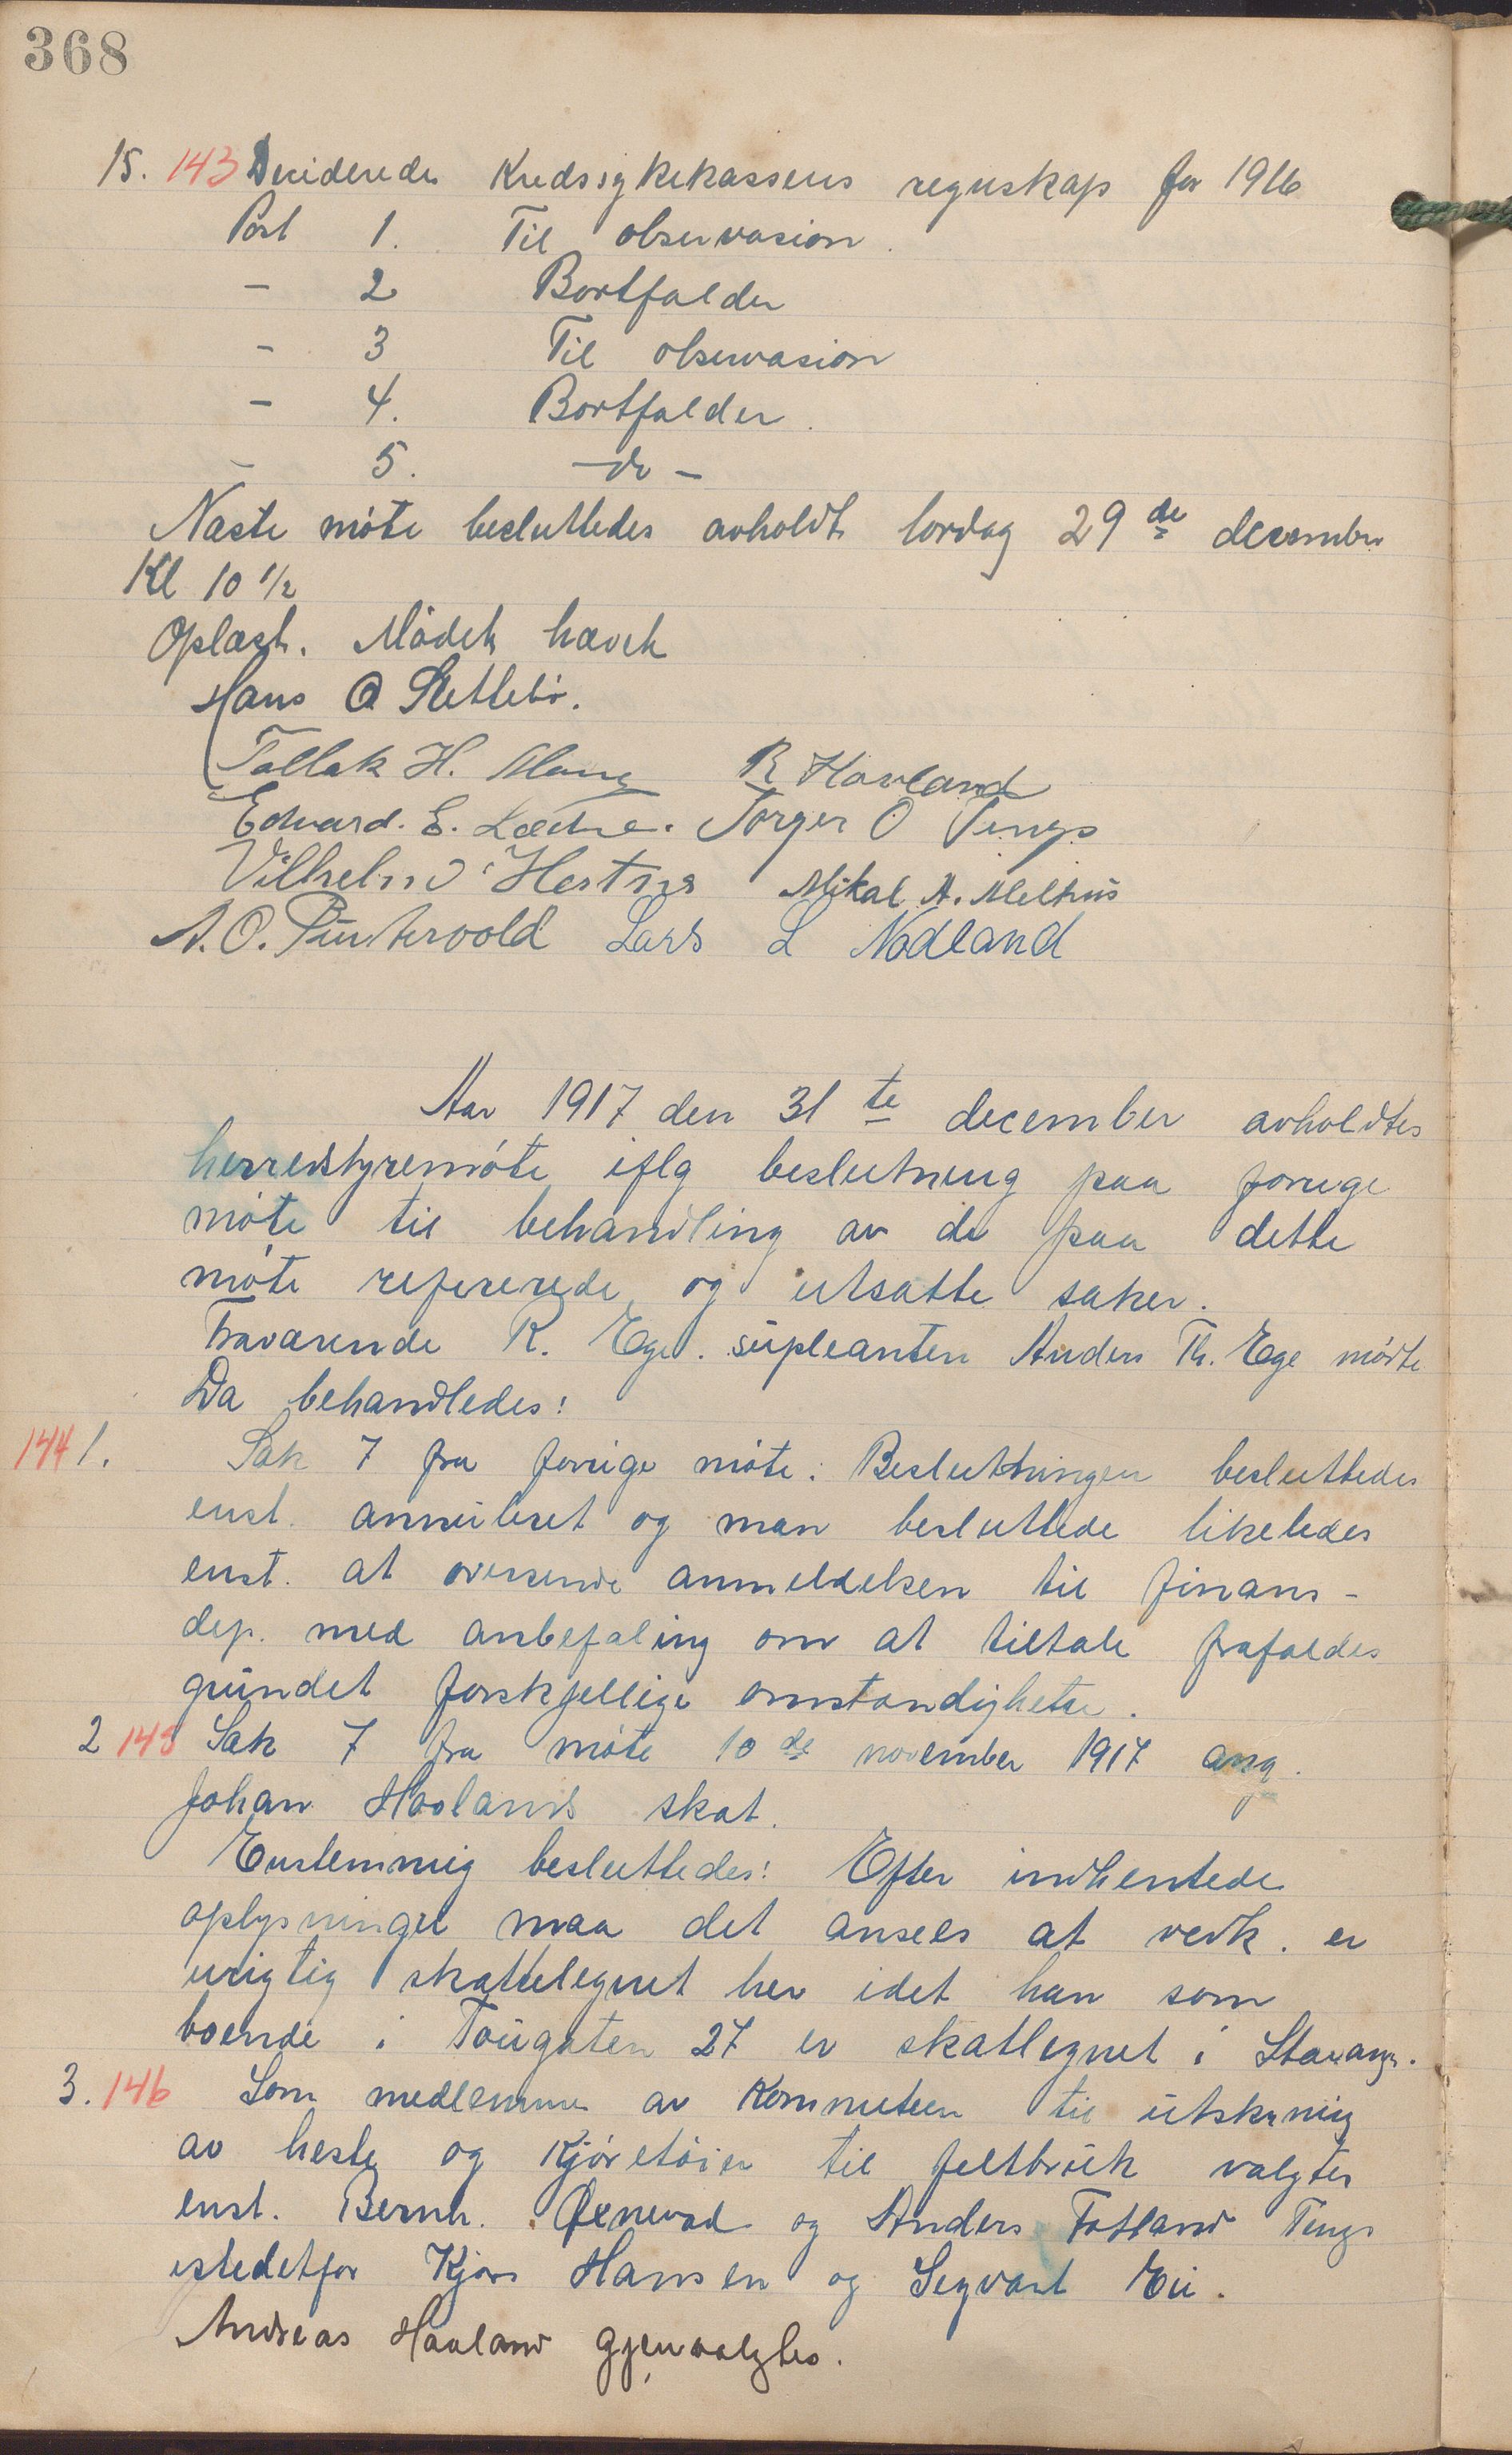 368
15. 143 Decideredes Kredssykekassens regnskap for 1916
Post 1. Til observasion.
- 2 Bortfalder
- 3 Til observasion
- 4. Bortfalder.
- 5. - do -
Næste møte besluttedes avholdt lørdag 29de december
Kl 10 1/2
Oplæst. Mødet hævet
Hans O Sletlebø.
Tollak H. R Havland
Edvard. E. Torger O Tengs
Vilhelm Hestnes Mikal A. Melhus
A. O. Puntervold Lars L Nodland
Aar 1917 den 31te december avholdtes
herredstyremøte iflg beslutning paa forrige
møte til behandling av de paa dette
møte refererede og utsatte saker.
Fraværende R. Ege. supleanten Anders Th. Ege mødte
Da behandledes:
144 1. Sak 7 fra forrige møte. Beslutningen besluttedes
enst. annuleret og man besluttede likeledes
enst. at oversende anmeldelsen til finans-
dep. med anbefaling om at tiltale frafaldes
grundet forskjellige omstændigheter.
2 145 Sak 7 fra møte 10de november 1917 ang.
Johan Haalands skat.
Enstemmig besluttedes: Efter indhentede
oplysninger maa det ansees at vedk. er
urigtig skattelegnet her idet han som
boende i Tougaten 27 er skatlegnet i Stavanger.
3. 146 Som medlemmer av Kommiteen til utskrivning
av heste og Kjøretøier til feltbruk valgtes
enst. Bernh. Ørnevad og Anders Fotland Tengs
istedetfor Kjørs Hansen og Segvart Eie.
Andreas Haaland gjenvalgtes.